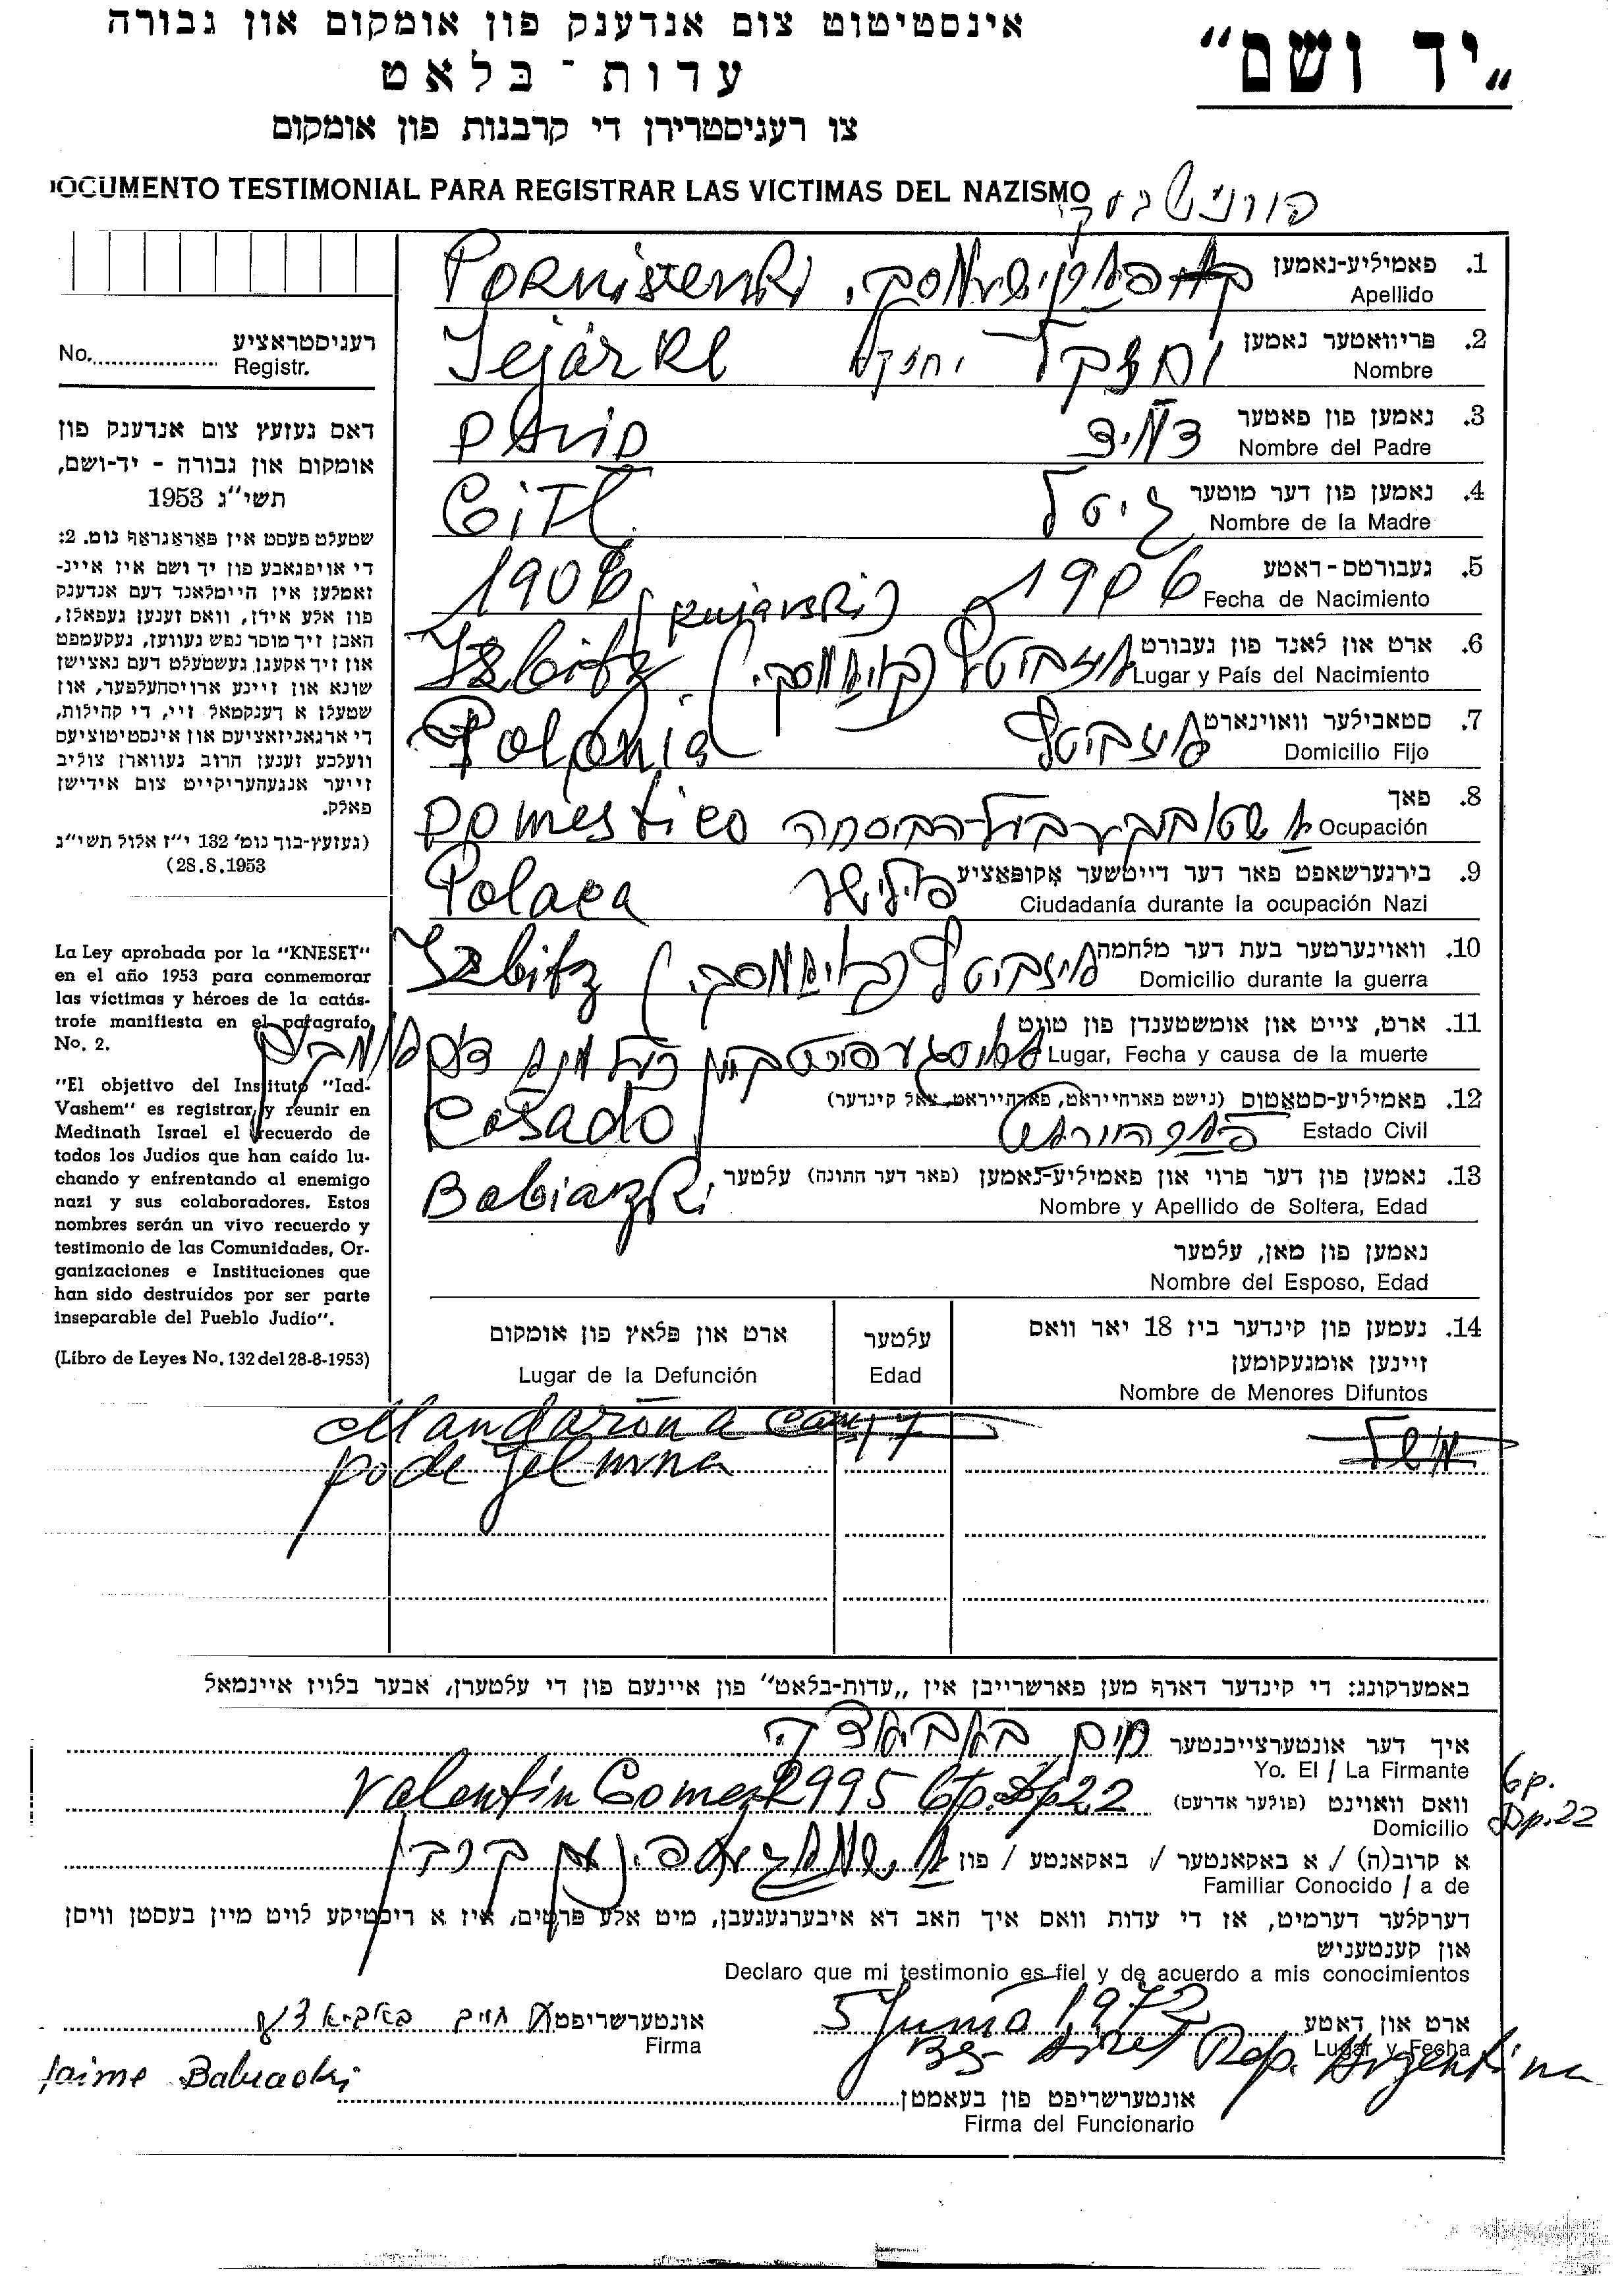 אינסטיטוט צום אנדענק פון אומקום און גבורה
„יד ושם“
עדות-בלאט
צו רעגיסטרירן די קרבנות פון אומקום
DOCUMENTO TESTIMONIAL PARA REGISTRAR LAS VICTIMAS DEL NAZISMO
1. פאמיליע-נאמען
Apellido
2. פריוואטער נאמען יחזקל
Nombre Jejázkl
3. נאמען פון פאטער
Nombre del Padre DAVID
4. נאמען פון דער מוטער גיטל
Nombre de la Madre GiTL
5. געבורטס-דאטע 1906
Fecha de Nacimiento 1906
(kujavski)
6. ארט און לאנד פון געבורט איזביטצ
Lugar y País del Nacimiento Izbitz
7. סטאבילער וואוינארט איזביטצ
Domicilio Fijo Polonia
8. פאך
Ocupación Domestico
9. בירגערשאפט פאר דער דייטשער אָקופּאַציע פוילישע
Ciudadanía durante la ocupación Nazi Polaca
10. וואוינערטער בעת דער מלחמה איזביטצ
Domicilio durante la guerra Izbitz
11. ארט, צייט און אומשטענדן פון טויט
Lugar, Fecha y causa de la muerte
12. פאמיליע-סטאַטוס (נישט פארהייראט, פארהייראט, צאל קינדער)
Estado Civil Casado
13. נאמען פון דער פרוי און פאמיליע-נאמען (פאר דער חתונה) עלטער
Nombre y Apellido de Soltera, Edad Babiazki
נאמען פון מאן, עלטער
Nombre del Esposo, Edad
14. נעמען פון קינדער ביז 18 יאר וואס
זיינען אומגעקומען
Nombre de Menores Difuntos
עלטער
Edad
ארט און פלאץ פון אומקום
Lugar de la Defunción
Mandaron a cam
po de Jelmna
רעגיסטראציע
No. Registr.
דאס געזעץ צום אנדענק פון
אומקום און גבורה - יד-ושם,
תשי״ג 1953
שטעלט פעסט אין פּאראגראף נומ. 2:
די אויפגאבע פון יד ושם איז איינ-
זאמלען אין היימלאנד דעם אנדענק
פון אלע אידן, וואס זענען געפאלן,
האבן זיך מוסר נפש געווען, געקעמפט
און זיך אקעגן געשטעלט דעם נאצישן
שונא און זיינע ארויסהעלפער, און
שטעלן א דענקמאל זיי, די קהילות,
די ארגאניזאציעס און אינסטיטוציעס
וועלכע זענען חרוב געווארן צוליב
זייער אנגעהעריקייט צום אידישן
פאלק.
(געזעץ-בוך נומ׳ 132 י״ז אלול תשי״ג
28.8.1953)
La Ley aprobada por la "KNESET"
en el año 1953 para conmemorar
las víctimas y héroes de la catás-
trofe manifiesta en el paragrafo
No. 2.
"El objetivo del Instituto "Iad-
Vashem" es registrar y reunir en
Medinath Israel el recuerdo de
todos los Judíos que han caído lu-
chando y enfrentando al enemigo
nazi y sus colaboradores. Estos
nombres serán un vivo recuerdo y
testimonio de las Comunidades, Or-
ganizaciones e Instituciones que
han sido destruídos por ser parte
inseparable del Pueblo Judío".
(Libro de Leyes No. 132 del 28-8-1953)
באמערקונג: די קינדער דארף מען פארשרייבן אין „עדות-בלאט“ פון איינעם פון די עלטערן, אבער בלויז איינמאל
איך דער אונטערצייכנטער חיים
Yo. El / La Firmante
וואס וואוינט (פולער אדרעס) Valentin Gomez 2995 6p. Dp 22
Domicilio
6p.
Dp. 22
א קרוב(ה) / א באקאנטער / באקאנטע / פון
Familiar Conocido / a de
דערקלער דערמיט, אז די עדות וואס איך האב דא איבערגעגעבן, מיט אלע פרטים, איז א ריכטיקע לויט מיין בעסטן וויסן
און קענטעניש
Declaro que mi testimonio es fiel y de acuerdo a mis conocimientos
ארט און דאטע 5 Junio 1972
Lugar y Fecha Bs Aires Rep. Argentina
אונטערשריפט חיים
Firma
Jaime Babiacki
אונטערשריפט פון בעאמטן
Firma del Funcionario